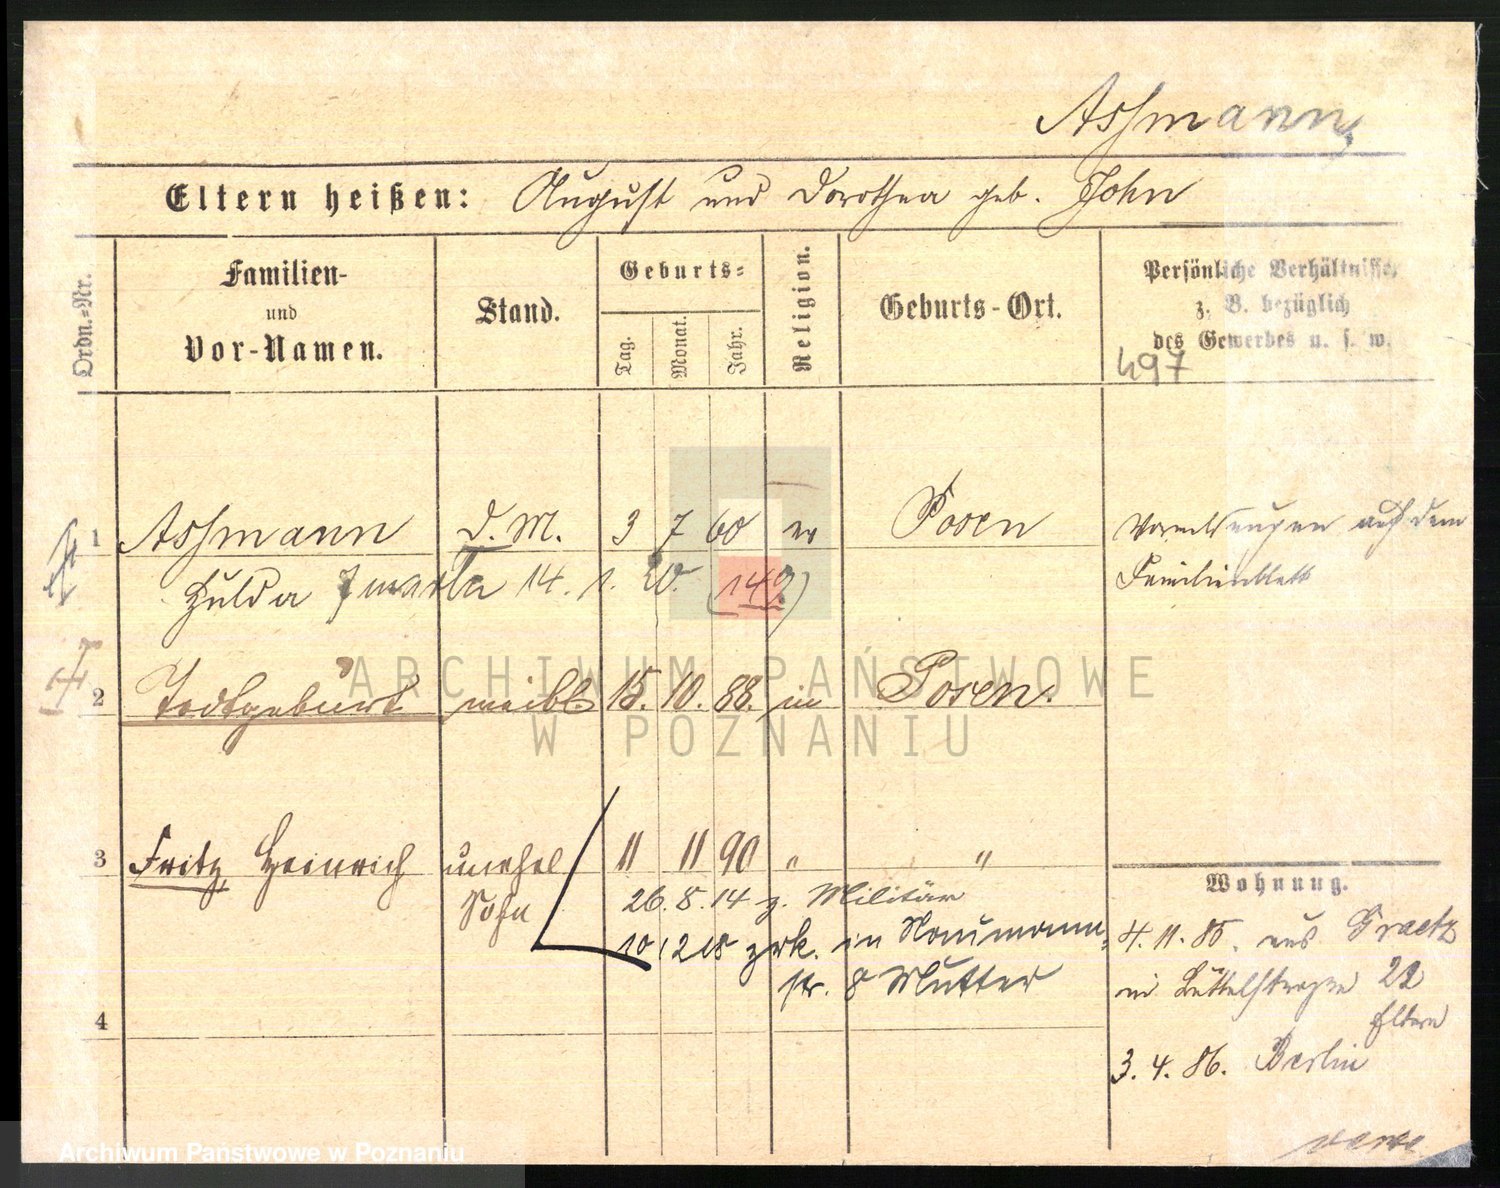 Assmann
Eltern heißen: August und Dorothea geb. John
Ordn.=Nr.
Familien- und Vor-Namen.
Stand.
Geburts=
Tag.
Monat.
Jahr.
Religion.
Geburts-Ort.
Persönliche Verhältnisse,
z. B. bezüglich
des Gewerbes u. s. w.
497
1 Assmann d. M. 3 7 60 ev Posen
Hulda 14. 1. 20. (149)
auf dem
Familienblatt
2 Todtgeburt weibl. 15. 10. 88. Posen.
3 Fritz Heinrich unehel 11 11 90 " "
Sohn
26. 8. 14 z. Militär
10 12 18 zrk. in Naumann=
str. 8 Mutter
4
Wohnung.
4. 11. 85. aus Graetz
in Büttelstraße 22
Eltern
3. 4. 86. Berlin
ARCHIWUM PAŃSTWOWE
W POZNANIU
Archiwum Państwowe w Poznaniu